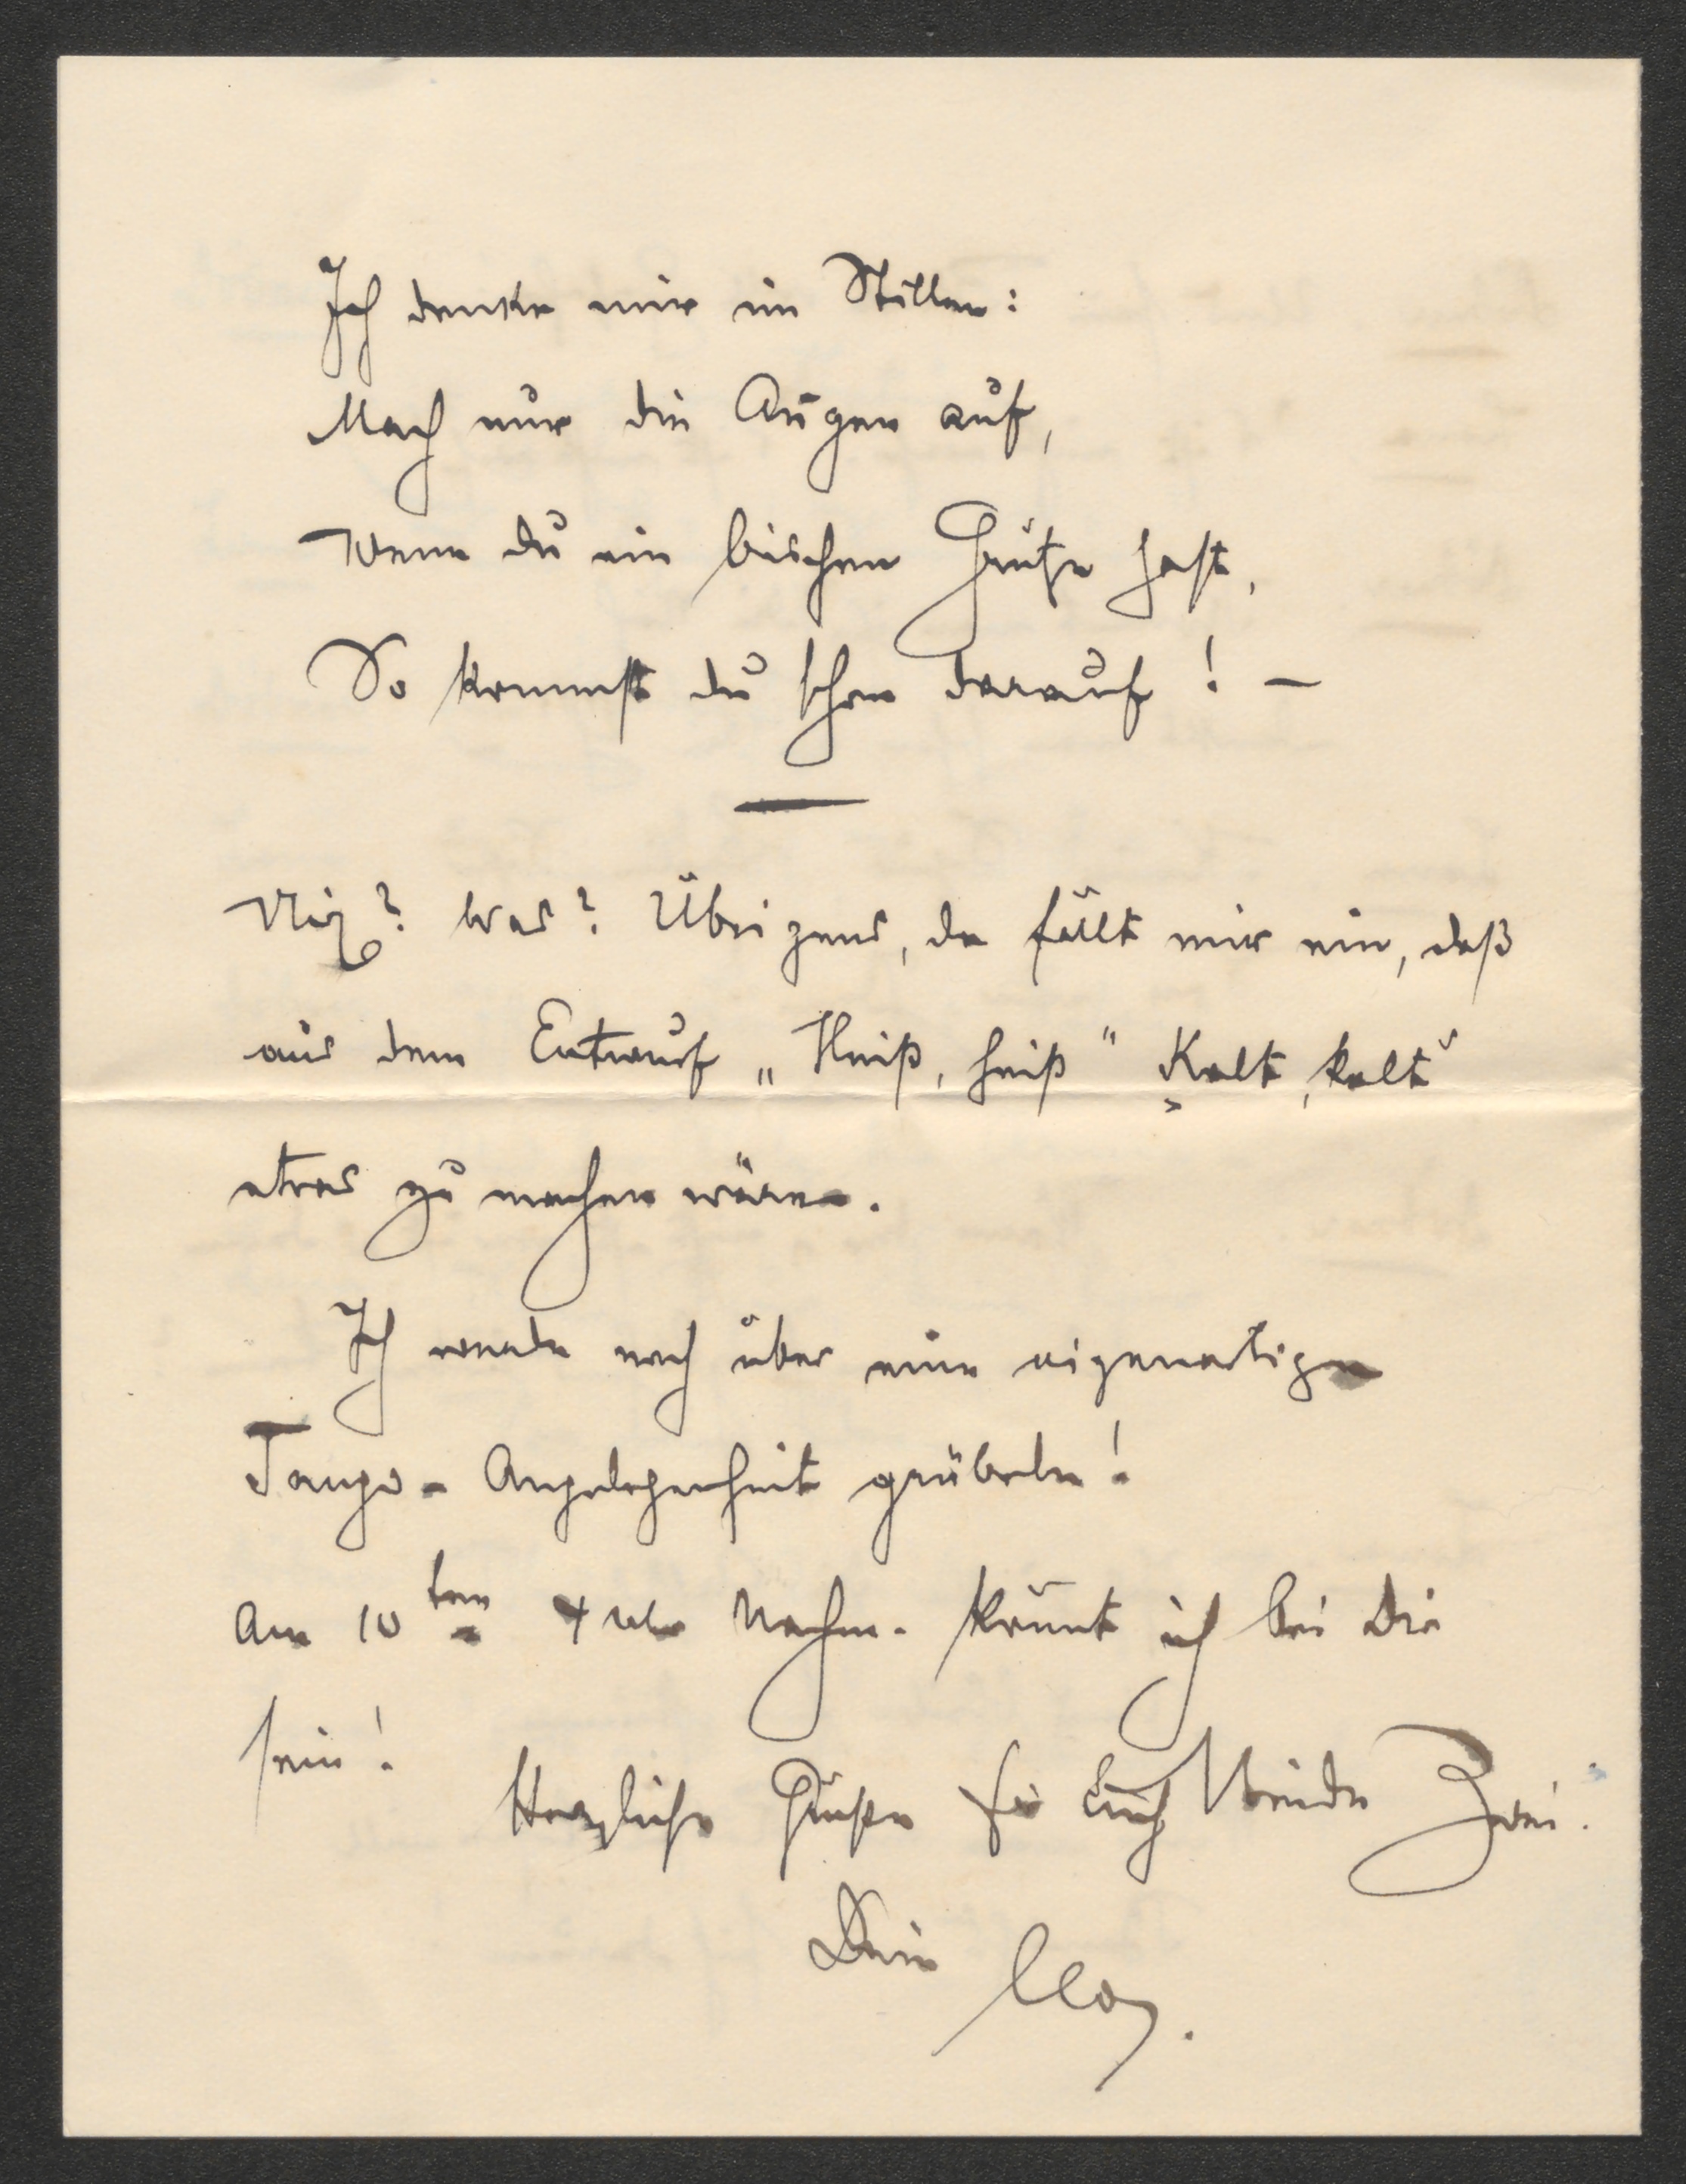 Ich denke mir im Stillen:
Mach nur die Augen auf,
Wenn du ein bischen Grütze hast,
So kommst du schon darauf! —
Nix? Was? Übrigens, da fällt mir ein, daß
aus dem Entwurf „Heiß, heiß" „Kalt, kalt"
etwas zu machen wäre.
Ich werde noch über eine eigenartige
Tango-Angelegenheit grübeln!
Am 10ten 4 Uhr Nachm. könnt ich bei Dir
sein!
Herzliche Grüße für Euch Beide Zwei.
Dein